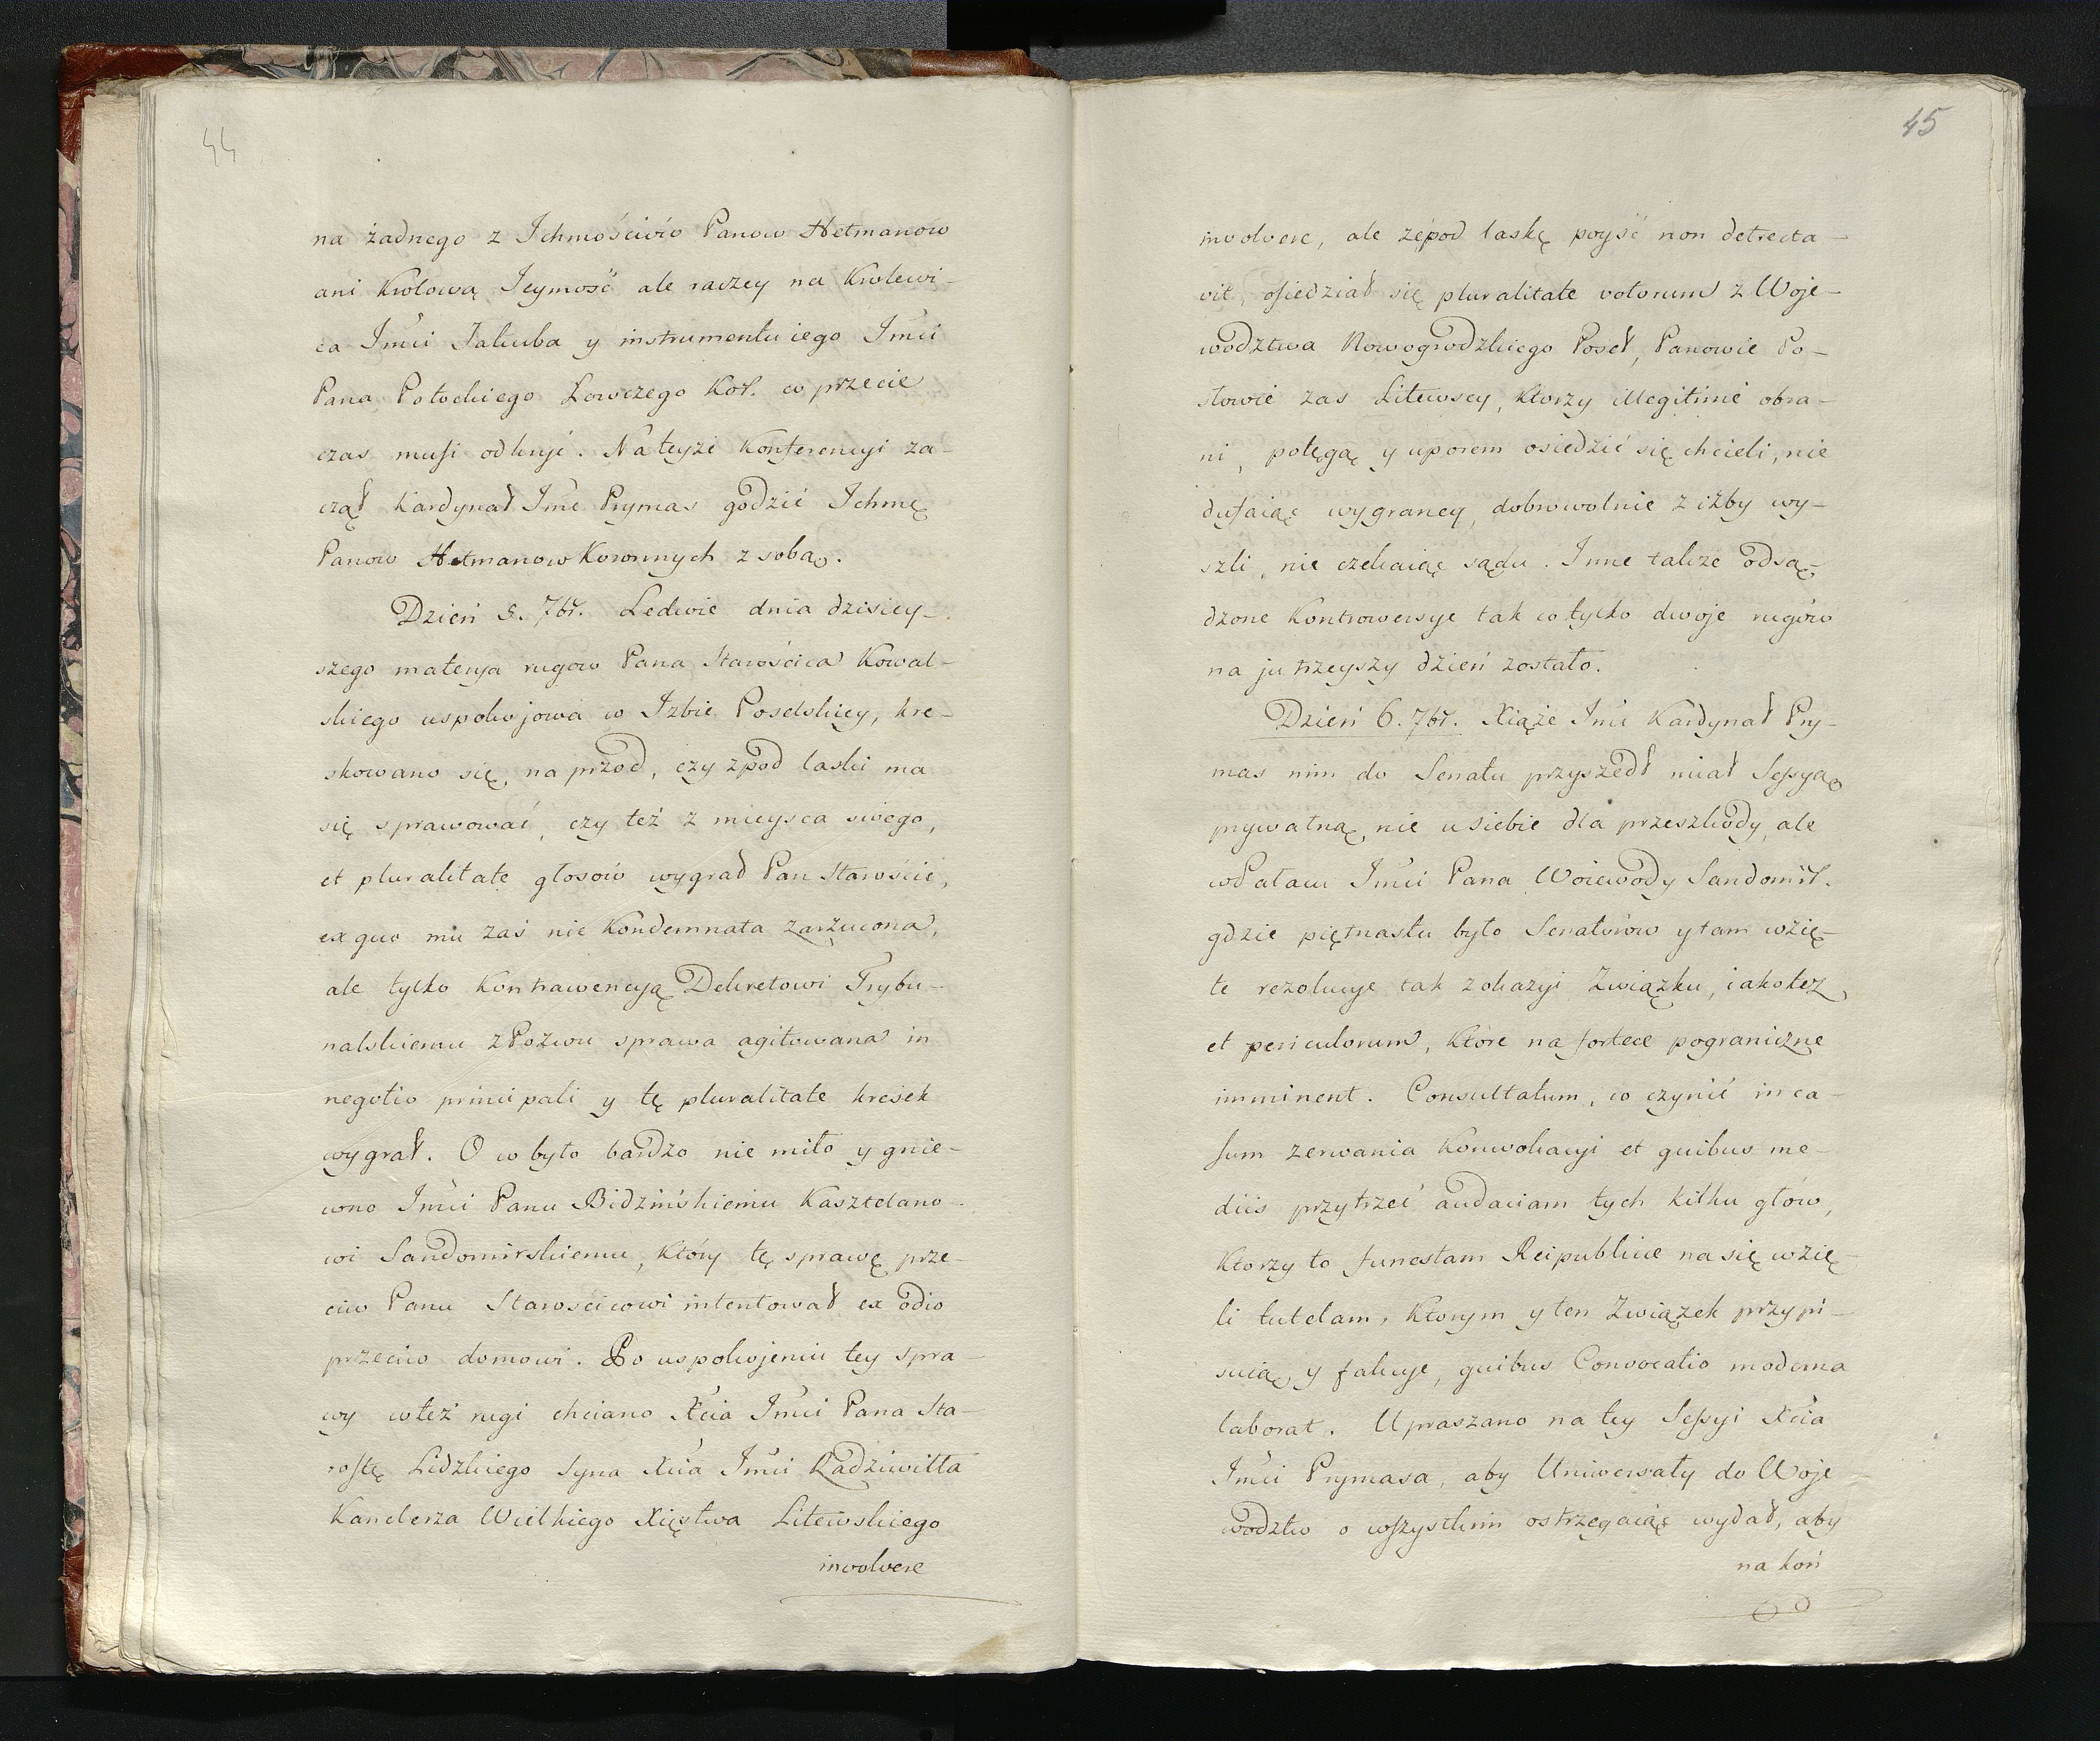 44
na żadnego z Ichmościów Panow Hetmanow
ani Krolową Jeymość ale raczey na Krolewi-
ca Jmci Jakuba y instrumentu iego Jmci
Pana Potockiego Łowczego Kor. co przecie
czas musi odkryć. Na teyże Konferencyi za-
czął Kardynał Jmc Prymas godzić Ichmę
Panow Hetmanow Koronnych z sobą.
Dzień 5. 7br. Ledwie dnia dzisiey-
szego materya rugow Pana Starościca Kowal-
skiego uspokojowa w Izbie Poselskiey, kre-
skowano się na przod, czy zpod laski ma
się sprawować, czy też z mieysca swego,
et pluralitate głosow wygrał Pan Starościc,
ex quo mu zaś nie Kondemnata zarzucona,
ale tylko Kontrawencyą Dekretowi Trybu-
nalskiemu z Pozwu sprawa agitowana in
negotio principali y tę pluralitate kresek
wygrał. O co było bardzo nie miło y gnie-
wno Jmci Panu Bidzińskiemu Kasztelano-
wi Sandomirskiemu, który tę sprawę prze-
ciw Panu Starościcowi intentował ex odio
przeciw domowi. Po uspokojeniu tey spra-
wy w też rugi chciano Xcia Jmci Pana Sta-
rostę Lidzkiego Syna Xcia Jmci Radziwiłła
Kanclerza Wielkiego Xięstwa Litewskiego
involvere
45
involvere, ale że pod laskę poyść non detrecta-
vit, osiedział się pluralitate votorum z Woje-
wodztwa Nowogrodzkiego Poseł, Panowie Po-
słowie zas Litewscy, Ktorzy illegitime obra-
ni, potęgą y uporem osiedzić się chcieli, nie
dufaiąc wygraney, dobrowolnie z iżby wy-
szli, nie czekaiąc sądu. Inne także odsą-
dzone Kontrowersye tak co tylko dwoje rugów
na jutrzeyszy dzień zostało.
Dzień 6. 7br. Xiąże Jmc Kardynał Pry-
mas nim do Senatu przyszedł miał Sessyą
prywatną, nie u siebie dla przeszkody, ale
w Pałacu Jmci Pana Woiewody Sandomir.
gdzie piętnastu było Senatorów y tam wzię-
te rezolucye tak z okazyi Związku, iako też
et periculorum, które na fortece pograniczne
imminent. Consultatum, co czynić in ca-
sum zerwania Konwokacyi et quibus me-
diis przytrzeć audaciam tych kilku głów,
Ktorzy to funestam Reipublicae na się wzię-
li tutelam, Ktorym y ten Związek przypi-
suią y fakcye, quibus Convocatio moderna
laborat. Upraszano na tey Sessyi Xcia
Jmci Prymasa, aby Uniwersały do Woje
wodztw o wszystkim ostrzegaiąc wydał, aby
na koń